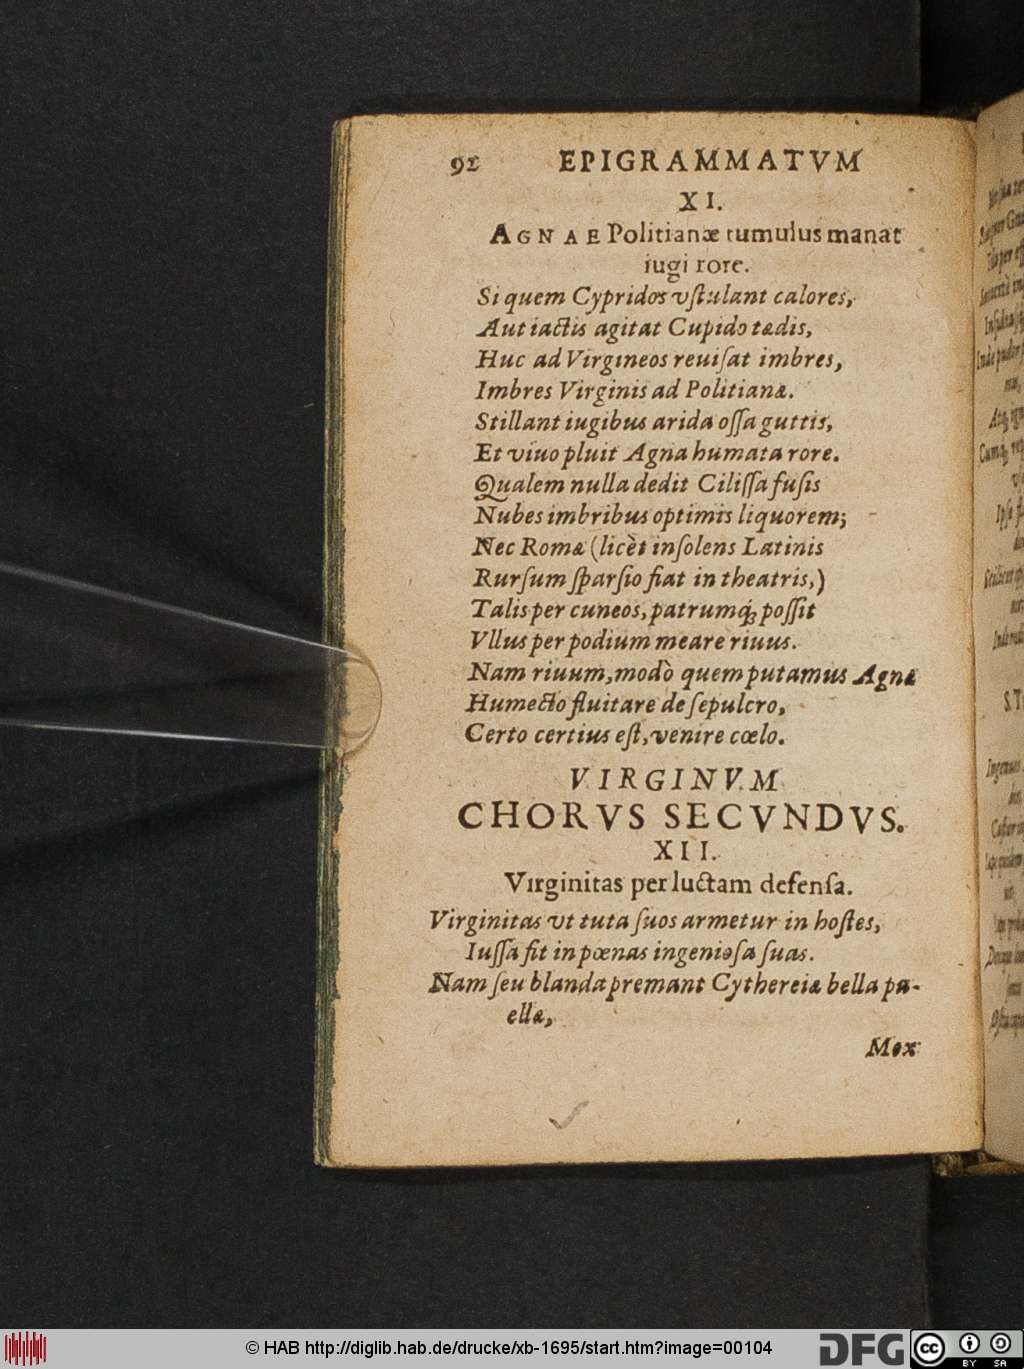 92 EPIGRAMMATVM
XI.
AGNAE Politianæ tumulus manat
iugi rore.
Si quem Cypridos vſtulant calores,
Aut iactis agitat Cupido tædis,
Huc ad Virgineos reuiſat imbres,
Imbres Virginis ad Politianæ.
Stillant iugibus arida oſſa guttis,
Et viuo pluit Agna humata rore.
Qualem nulla dedit Ciliſſa fuſis
Nubes imbribus optimis liquorem;
Nec Romæ (licèt inſolens Latinis
Rurſum ſparſio fiat in theatris,)
Talis per cuneos, patrumq́; poſſit
Vllus per podium meare riuus.
Nam riuum, modò quem putamus Agnæ
Humecto fluitare de ſepulcro,
Certo certius eſt, venire cœlo.
VIRGINVM
CHORVS SECVNDVS.
XII.
Virginitas per luctam defenſa.
Virginitas vt tuta ſuos armetur in hoſtes,
Iuſſa fit in pœnas ingenioſa ſuas.
Nam ſeu blanda premant Cythereiæ bella pu-
ellæ,
Mox
© HAB http://diglib.hab.de/drucke/xb-1695/start.htm?image=00104
DFG
cc
BY SA